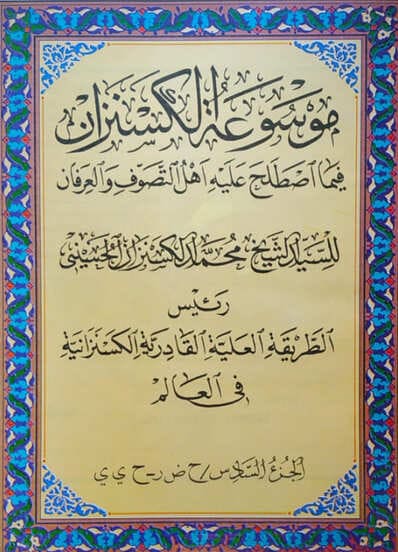 موسوعة الكسنزان
فيما اصطلح عليه أهل التصوف والعرفان
للسيد الشيخ محمد الكسنزان الحسيني
رئيس
الطريقة العلية القادرية الكسنزانية
في العالم
الجزء السادس / ح ض ر - ح ي ي